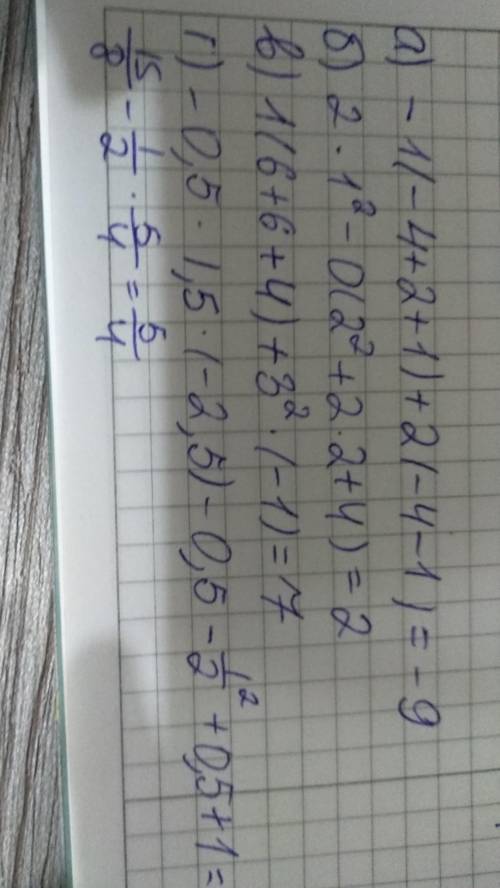 а) -1(-4+2+1)+2(-4-1)=-9
б) 2·1²-0(2²+2·2+4)=2
в) 1(6+6+4)+3²·(-1)=7
г) -0,5·1,5·(-2,5)-0,5-1/2²+0,5+1=
15/8-1/2·5/4=5/4